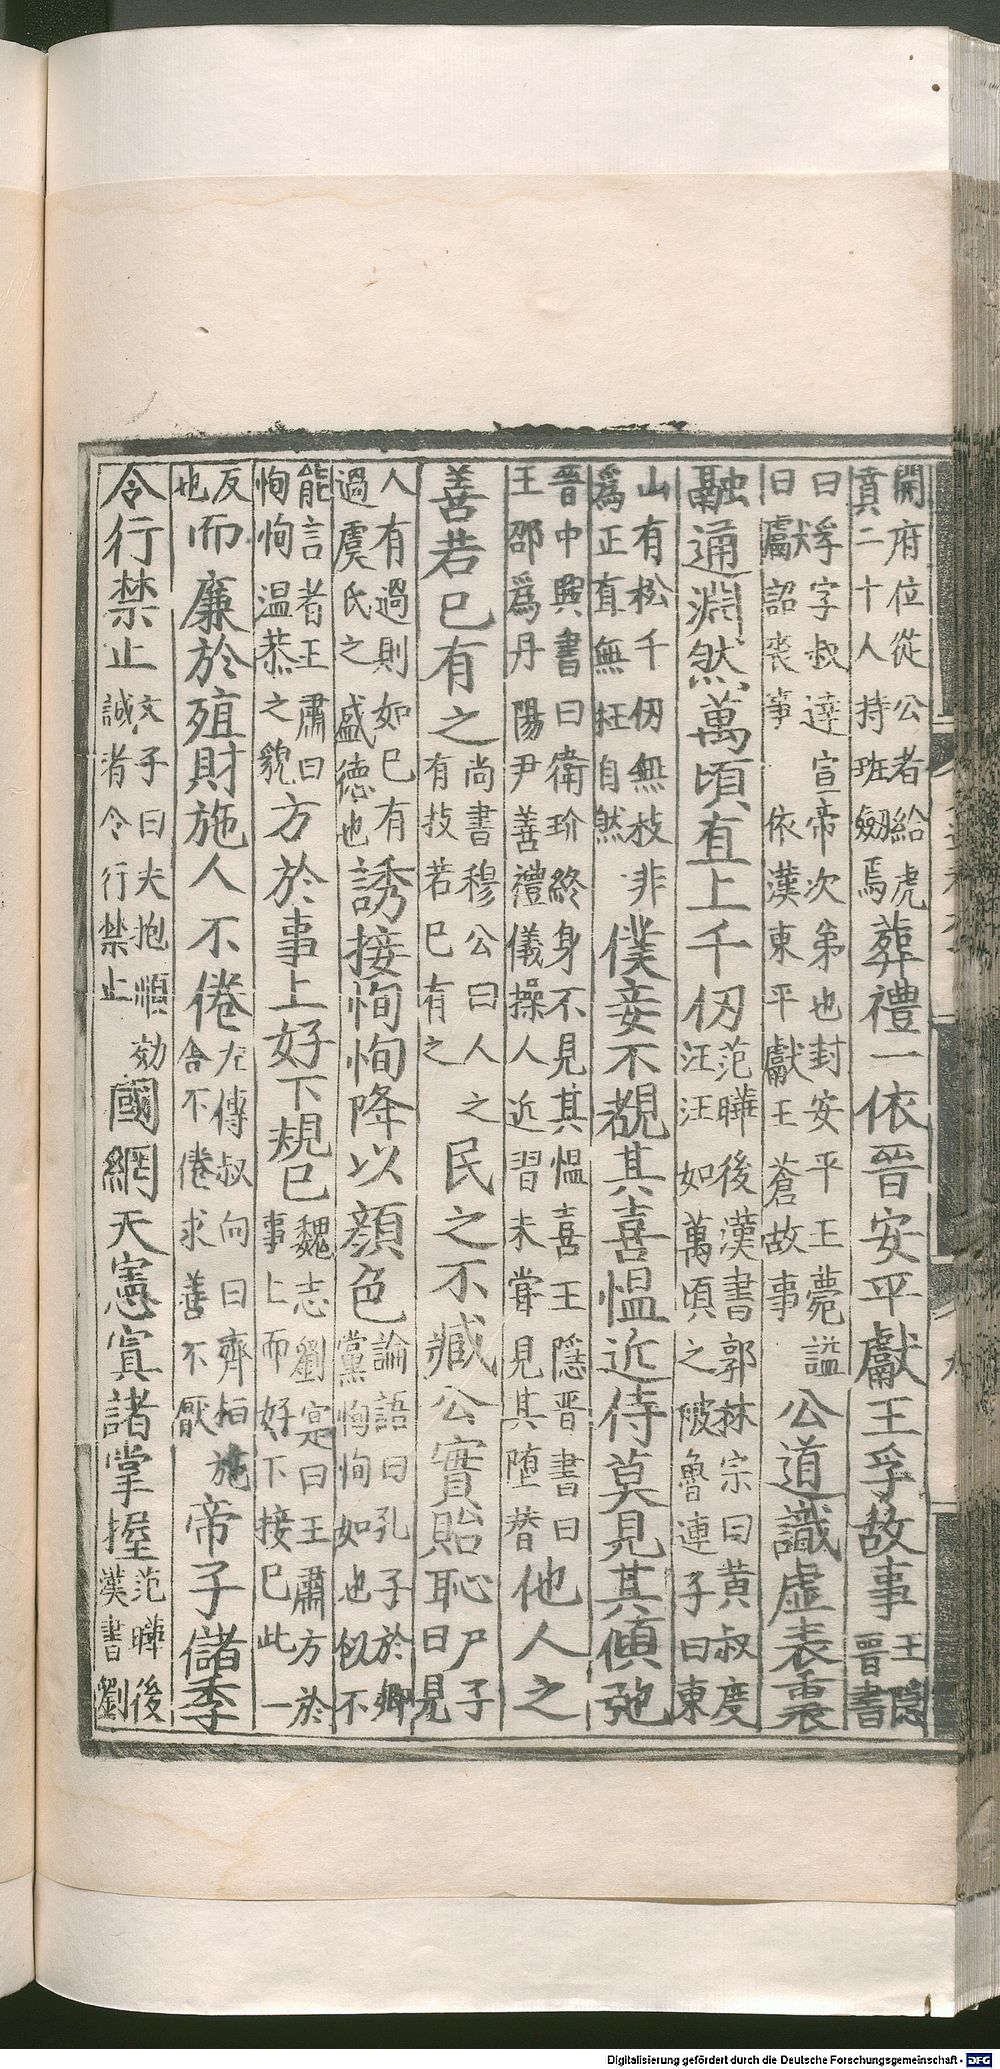 開府位從公者給虎
賁二十人持班劔焉葬禮一依晉安平獻王孚故事王隱
晉書
曰孚字叔達宣帝次弟也封安平王薨謚
曰獻詔喪事依漢東平獻王蒼故事公道識虛表裏
融通淵然萬頃直上千仞范曄後漢書郭林宗曰黃叔度
汪汪如萬頃之陂魯連子曰東
山有松千仞無枝非
爲正直無枉自然僕妾不覩其喜慍近侍莫見其傾弛
晉中興書曰衛玠終身不見其慍喜王隱晉書曰
王邵爲丹陽尹善禮儀操人近習未嘗見其墮替他人之
善若已有之尚書穆公曰人之
有技若已有之民之不臧公實貽恥尸子
曰見
人有過則如已有
過虞氏之盛德也誘接恂恂降以顔色論語曰孔子於鄉
黨恂恂如也似不
能言者王肅曰
恂恂温恭之貌方於事上好下規已魏志劉寔曰王肅方於
事上而好下接已此一
反
也而廉於殖財施人不倦左傳叔向曰齊桓施
舍不倦求善不厭帝子儲季
令行禁止文子曰夫抱順効
誠者令行禁止國網天憲寘諸掌握范曄後
漢書劉
Digitalisierung gefördert durch die Deutsche Forschungsgemeinschaft - DFG